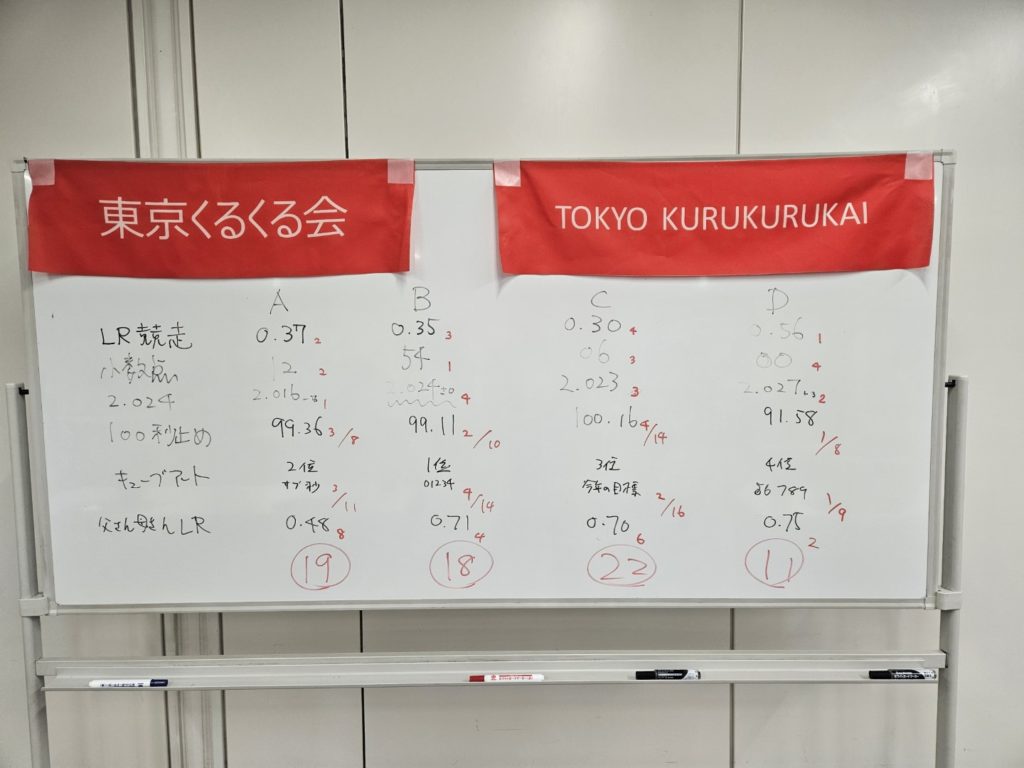 東京くるくる会
TOKYO KURUKURUKAI
A B C D
LR競走 0.37 2 0.35 3 0.30 4 0.56 1
小数点 12 2 54 1 06 3 00 4
2.024 2.016 1 2.024 4 2.023 3 2.027 2
100秒止め 99.36 3/8 99.11 2/10 100.16 4/14 91.58 1/8
キューブアート 2位 1位 3位 4位
サブ秒 3/11 01234 4/14 今年の目標 2/16 56789 1/9
父さん母さんLR 0.48 8 0.71 4 0.70 6 0.75 2
19 18 22 11